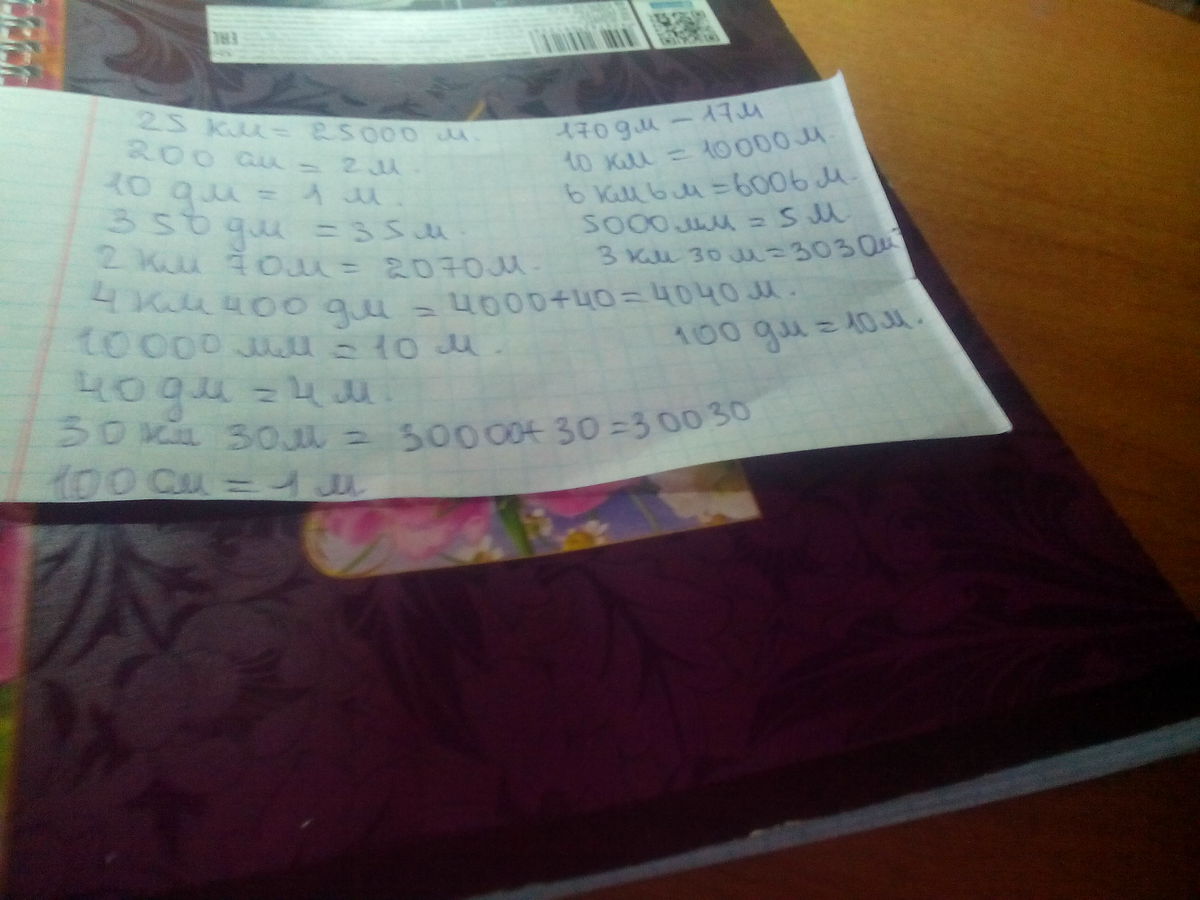 EAC
25 км = 25000 м.
200 см = 2 м.
10 дм = 1 м.
350 дм = 35 м.
2 км 70 м = 2070 м.
4 км 400 дм = 4000+40=4040 м.
10000 мм = 10 м.
40 дм = 4 м.
30 км 30 м = 30000+30=30030
100 см = 1 м
170 дм – 17 м
10 км = 10000 м.
6 км 6 м = 6006 м.
5000 мм = 5 м
3 км 30 м = 3030 м
100 дм = 10 м.